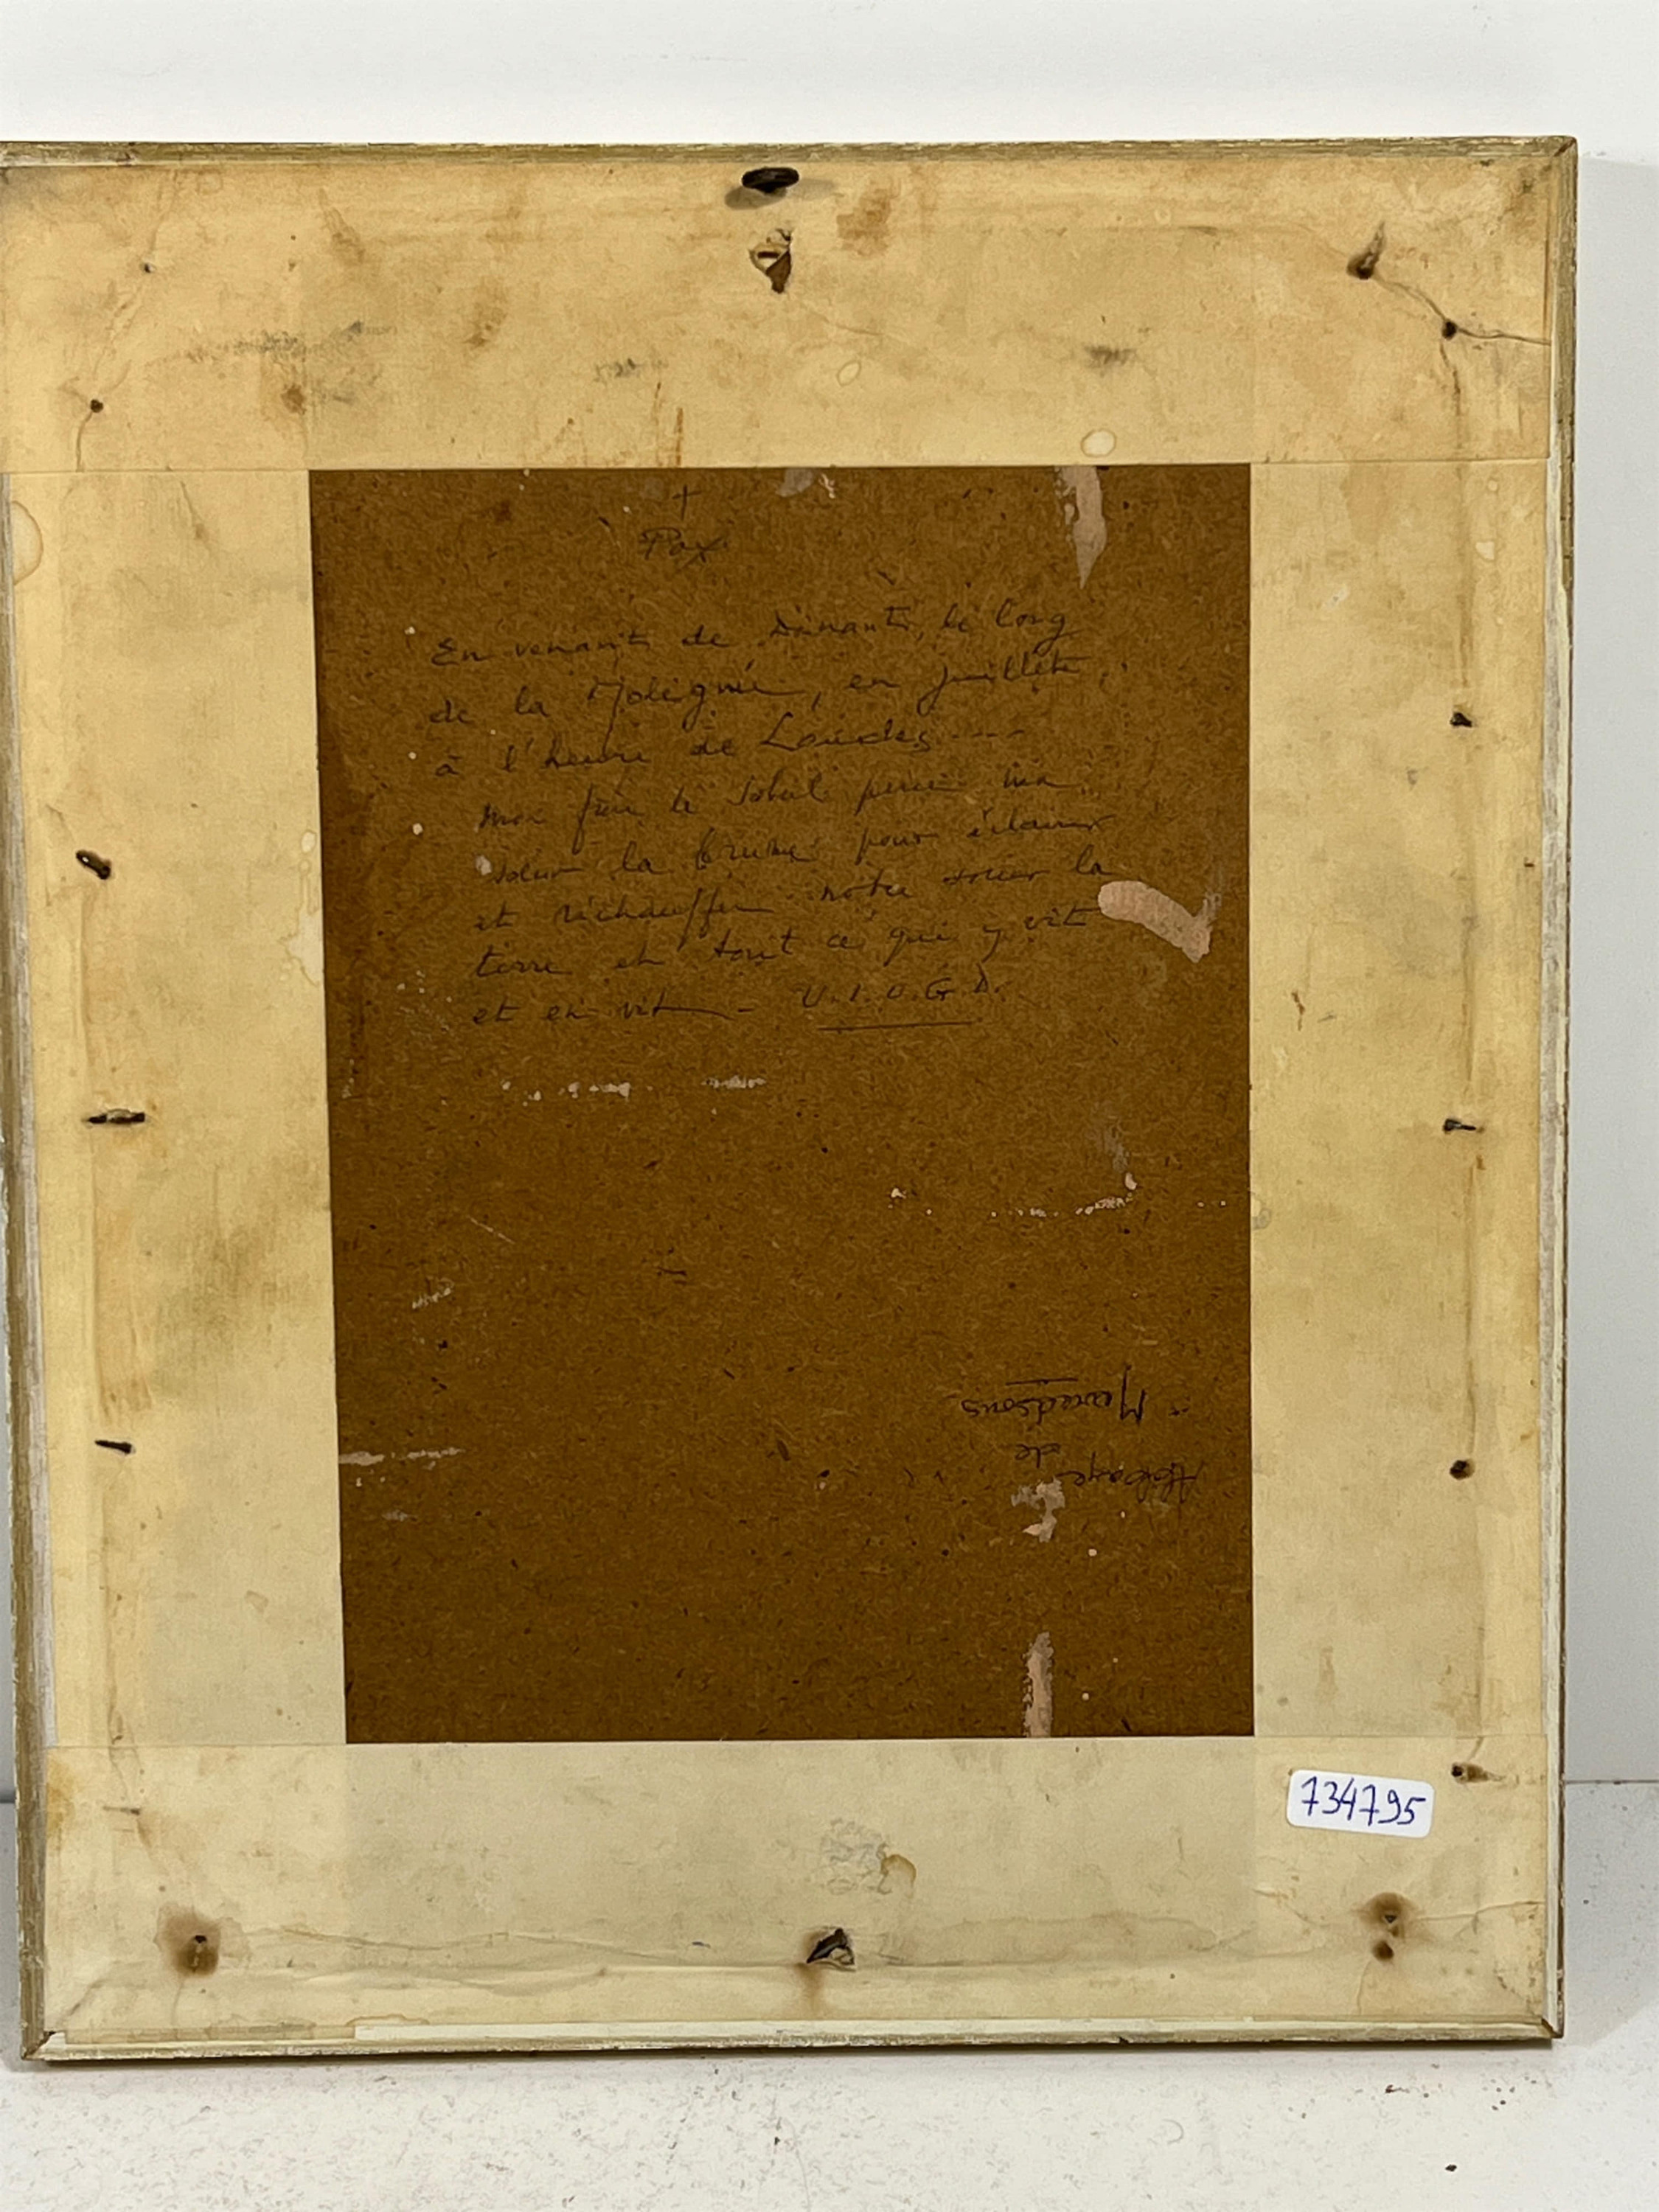 +
Pax
En venant de Dinant, le long
de la Molignée, en juillet,
à l'heure de Laudes ---
mon frère le soleil perce ma
sœur la brume pour éclairer
et réchauffer notre sœur la
terre et tout ce qui y vit
et en vit - U.I.O.G.D.
Abbaye
de
Maredsous
734795